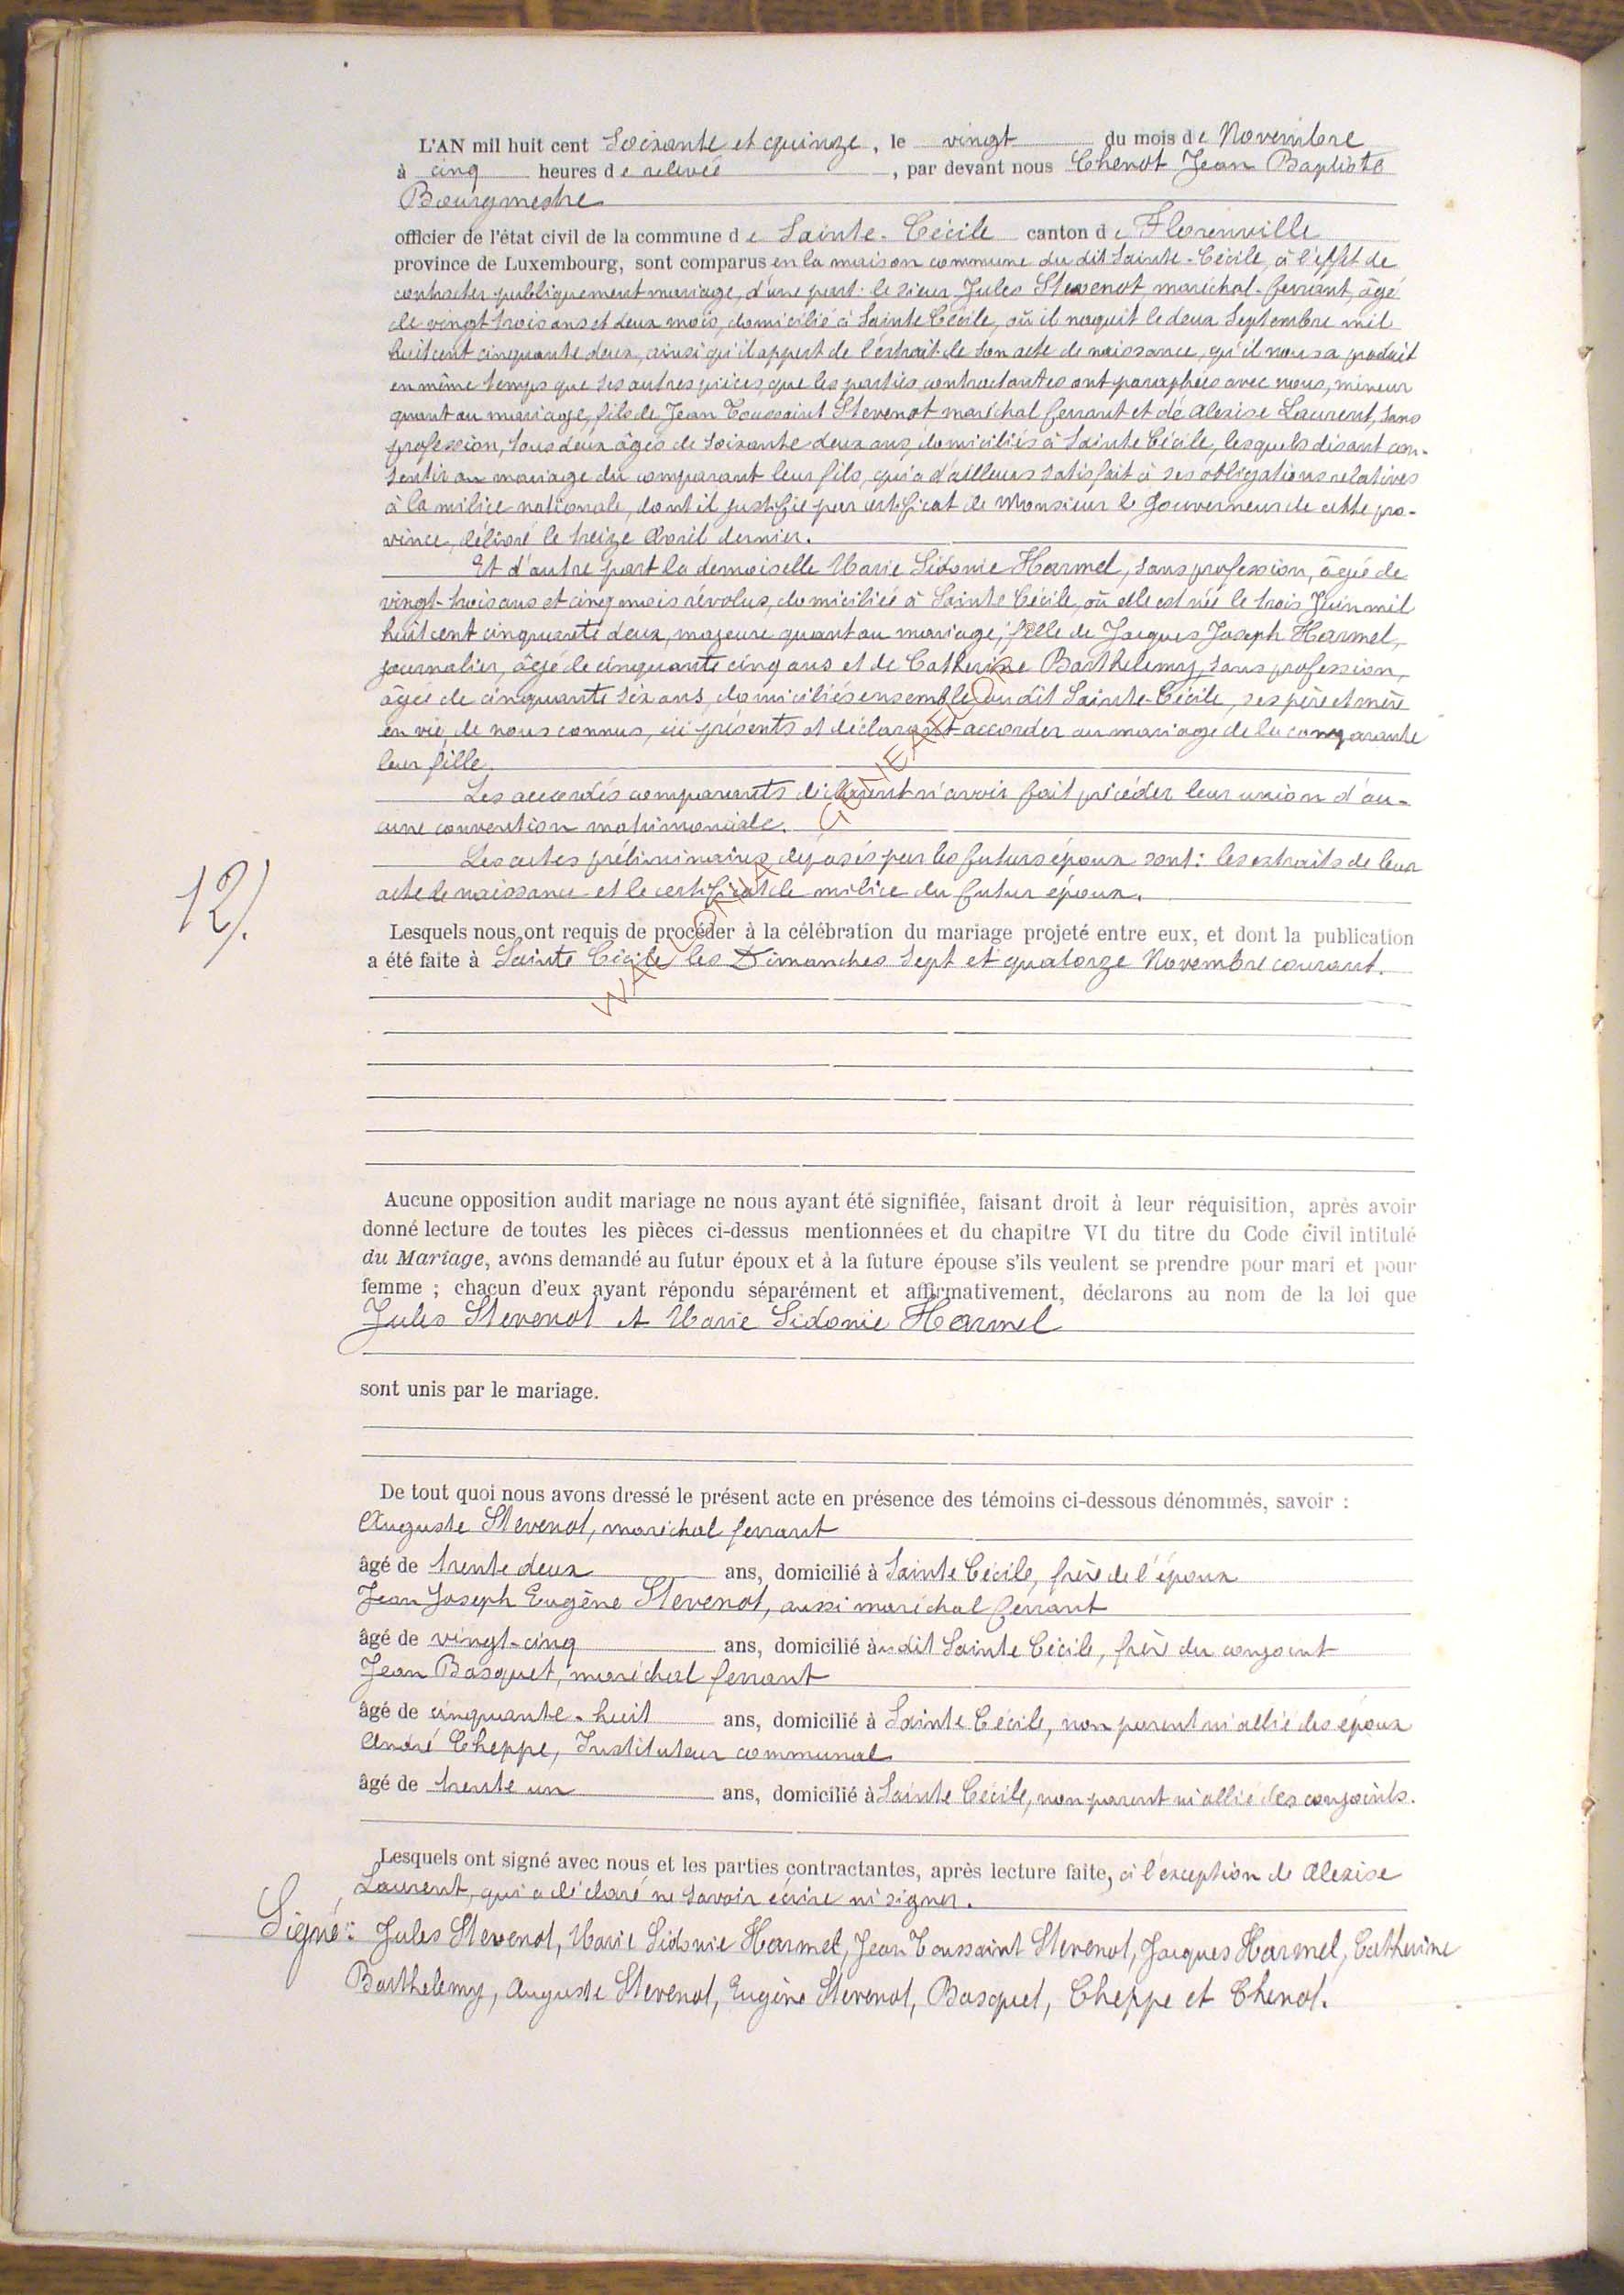 L'AN mil huit cent Soixante et quinze, le vingt du mois de Novembre
à cinq heures de relevée, par devant nous Chenot Jean Baptiste
Bourgmestre
officier de l'état civil de la commune de Sainte-Cécile canton de Florenville
province de Luxembourg, sont comparus en la maison commune du dit Sainte-Cécile, à l'effet de
contracter publiquement mariage, d'une part: le sieur Jules Stevenot, maréchal-ferrant, âgé
de vingt trois ans et deux mois, domicilié à Sainte Cécile, où il naquit le deux Septembre mil
huit cent cinquante deux, ainsi qu'il appert de l'extrait de son acte de naissance, qu'il nous a produit
en même temps que ses autres pièces, que les parties contractantes ont paraphées avec nous, mineur
quant au mariage, fils de Jean Toussaint Stevenot maréchal ferrant et de Alexise Laurent, sans
profession, tous deux âgés de soixante deux ans, domiciliés à Sainte Cécile, lesquels disant con-
sentir au mariage du comparant leur fils, qui a d'ailleurs satisfait à ses obligations relatives
à la milice nationale, dont il justifie par certificat de Monsieur le Gouverneur de cette pro-
vince, délivré le treize Avril dernier.
Et d'autre part la demoiselle Marie Sidonie Harmel, sans profession, âgée de
vingt-trois ans et cinq mois révolus, domiciliée à Sainte Cécile, où elle est née le trois Juin mil
huit cent cinquante deux, majeure quant au mariage, fille de Jacques Joseph Harmel,
journalier, âgé de cinquante cinq ans et de Catherine Barthelemy, sans profession,
âgée de cinquante six ans, domiciliés ensemble au dit Sainte-Cécile, ses père et mère
en vie, de nous connus, ici présents et déclarant accorder au mariage de la comparante
leur fille.
Les accordés comparants déclarent n'avoir fait précéder leur union d'au-
cune convention matrimoniale.
Les actes préliminaires déposés par les futurs époux sont: les extraits de leur
acte de naissance et le certificat de milice du futur époux.
12/.
Lesquels nous ont requis de procéder à la célébration du mariage projeté entre eux, et dont la publication
a été faite à Sainte Cécile les Dimanches Sept et quatorze Novembre courant.
WALLONIA GENEAHLOR
Aucune opposition audit mariage ne nous ayant été signifiée, faisant droit à leur réquisition, après avoir
donné lecture de toutes les pièces ci-dessus mentionnées et du chapitre VI du titre du Code civil intitulé
du Mariage, avons demandé au futur époux et à la future épouse s'ils veulent se prendre pour mari et pour
femme ; chacun d'eux ayant répondu séparément et affirmativement, déclarons au nom de la loi que
Jules Stevenot et Marie Sidonie Harmel
sont unis par le mariage.
De tout quoi nous avons dressé le présent acte en présence des témoins ci-dessous dénommés, savoir :
Auguste Stevenot, maréchal ferrant
âgé de trente deux ans, domicilié à Sainte Cécile, frère de l'époux
Jean Joseph Eugène Stevenot, aussi maréchal ferrant
âgé de vingt-cinq ans, domicilié au dit Sainte Cécile, frère du conjoint
Jean Basquet, maréchal ferrant
âgé de cinquante-huit ans, domicilié à Sainte Cécile, non parent ni allié des époux
André Cheppe, Instituteur communal
âgé de trente un ans, domicilié à Sainte Cécile, non parent ni allié des conjoints.
Lesquels ont signé avec nous et les parties contractantes, après lecture faite, à l'exception de Alexise
Laurent, qui a déclaré ne savoir écrire ni signer.
Signé: Jules Stevenot, Marie Sidonie Harmel, Jean Toussaint Stevenot, Jacques Harmel, Catherine
Barthelemy, Auguste Stevenot, Eugène Stevenot, Basquet, Cheppe et Chenot.